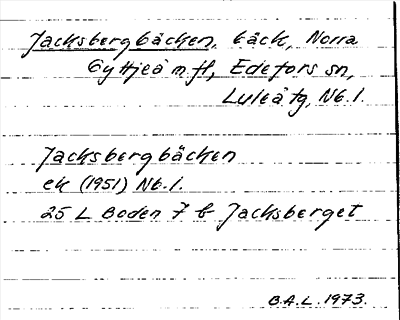 Jacksbergbäcken, bäck, Norra
Gyttjeå m.fl, Edefors sn,
Luleå tg, Nb. l.
Jacksbergbäcken
ek (1951) Nb. l.
25 L Boden 7 b Jacksberget
B.A.L. 1973.